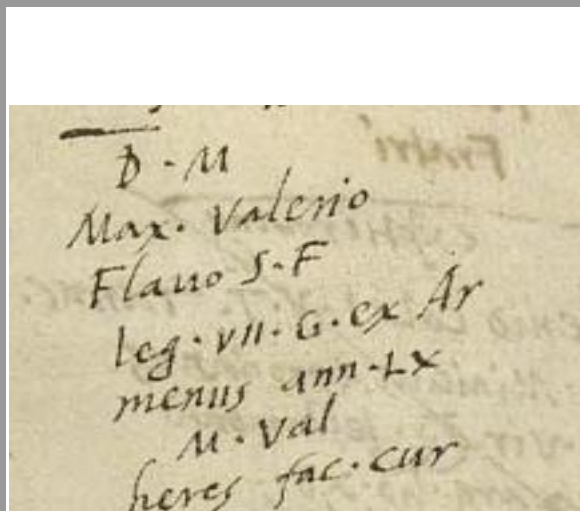 D · M
Max. Valerio
Flauo S·F
leg. VII. G. ex Ar
menus ann. LX
M. Val
heres fac. cur